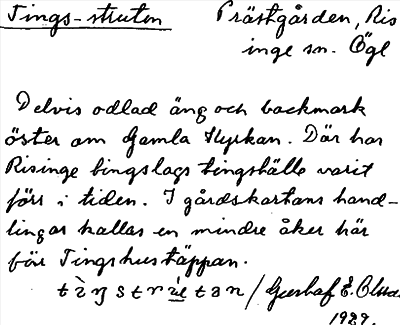 Tings-struten Prästgården, Ris
inge sn. Ögl
Delvis odlad äng och backmark
öster om Gamla Kyrkan. Där har
Risinge bingslags tingställe varit
förr i tiden. I gårdskartans hand-
lingar kallas en mindre åker här
för Tingshustäppan.
Gustaf E. Olsson
1929.